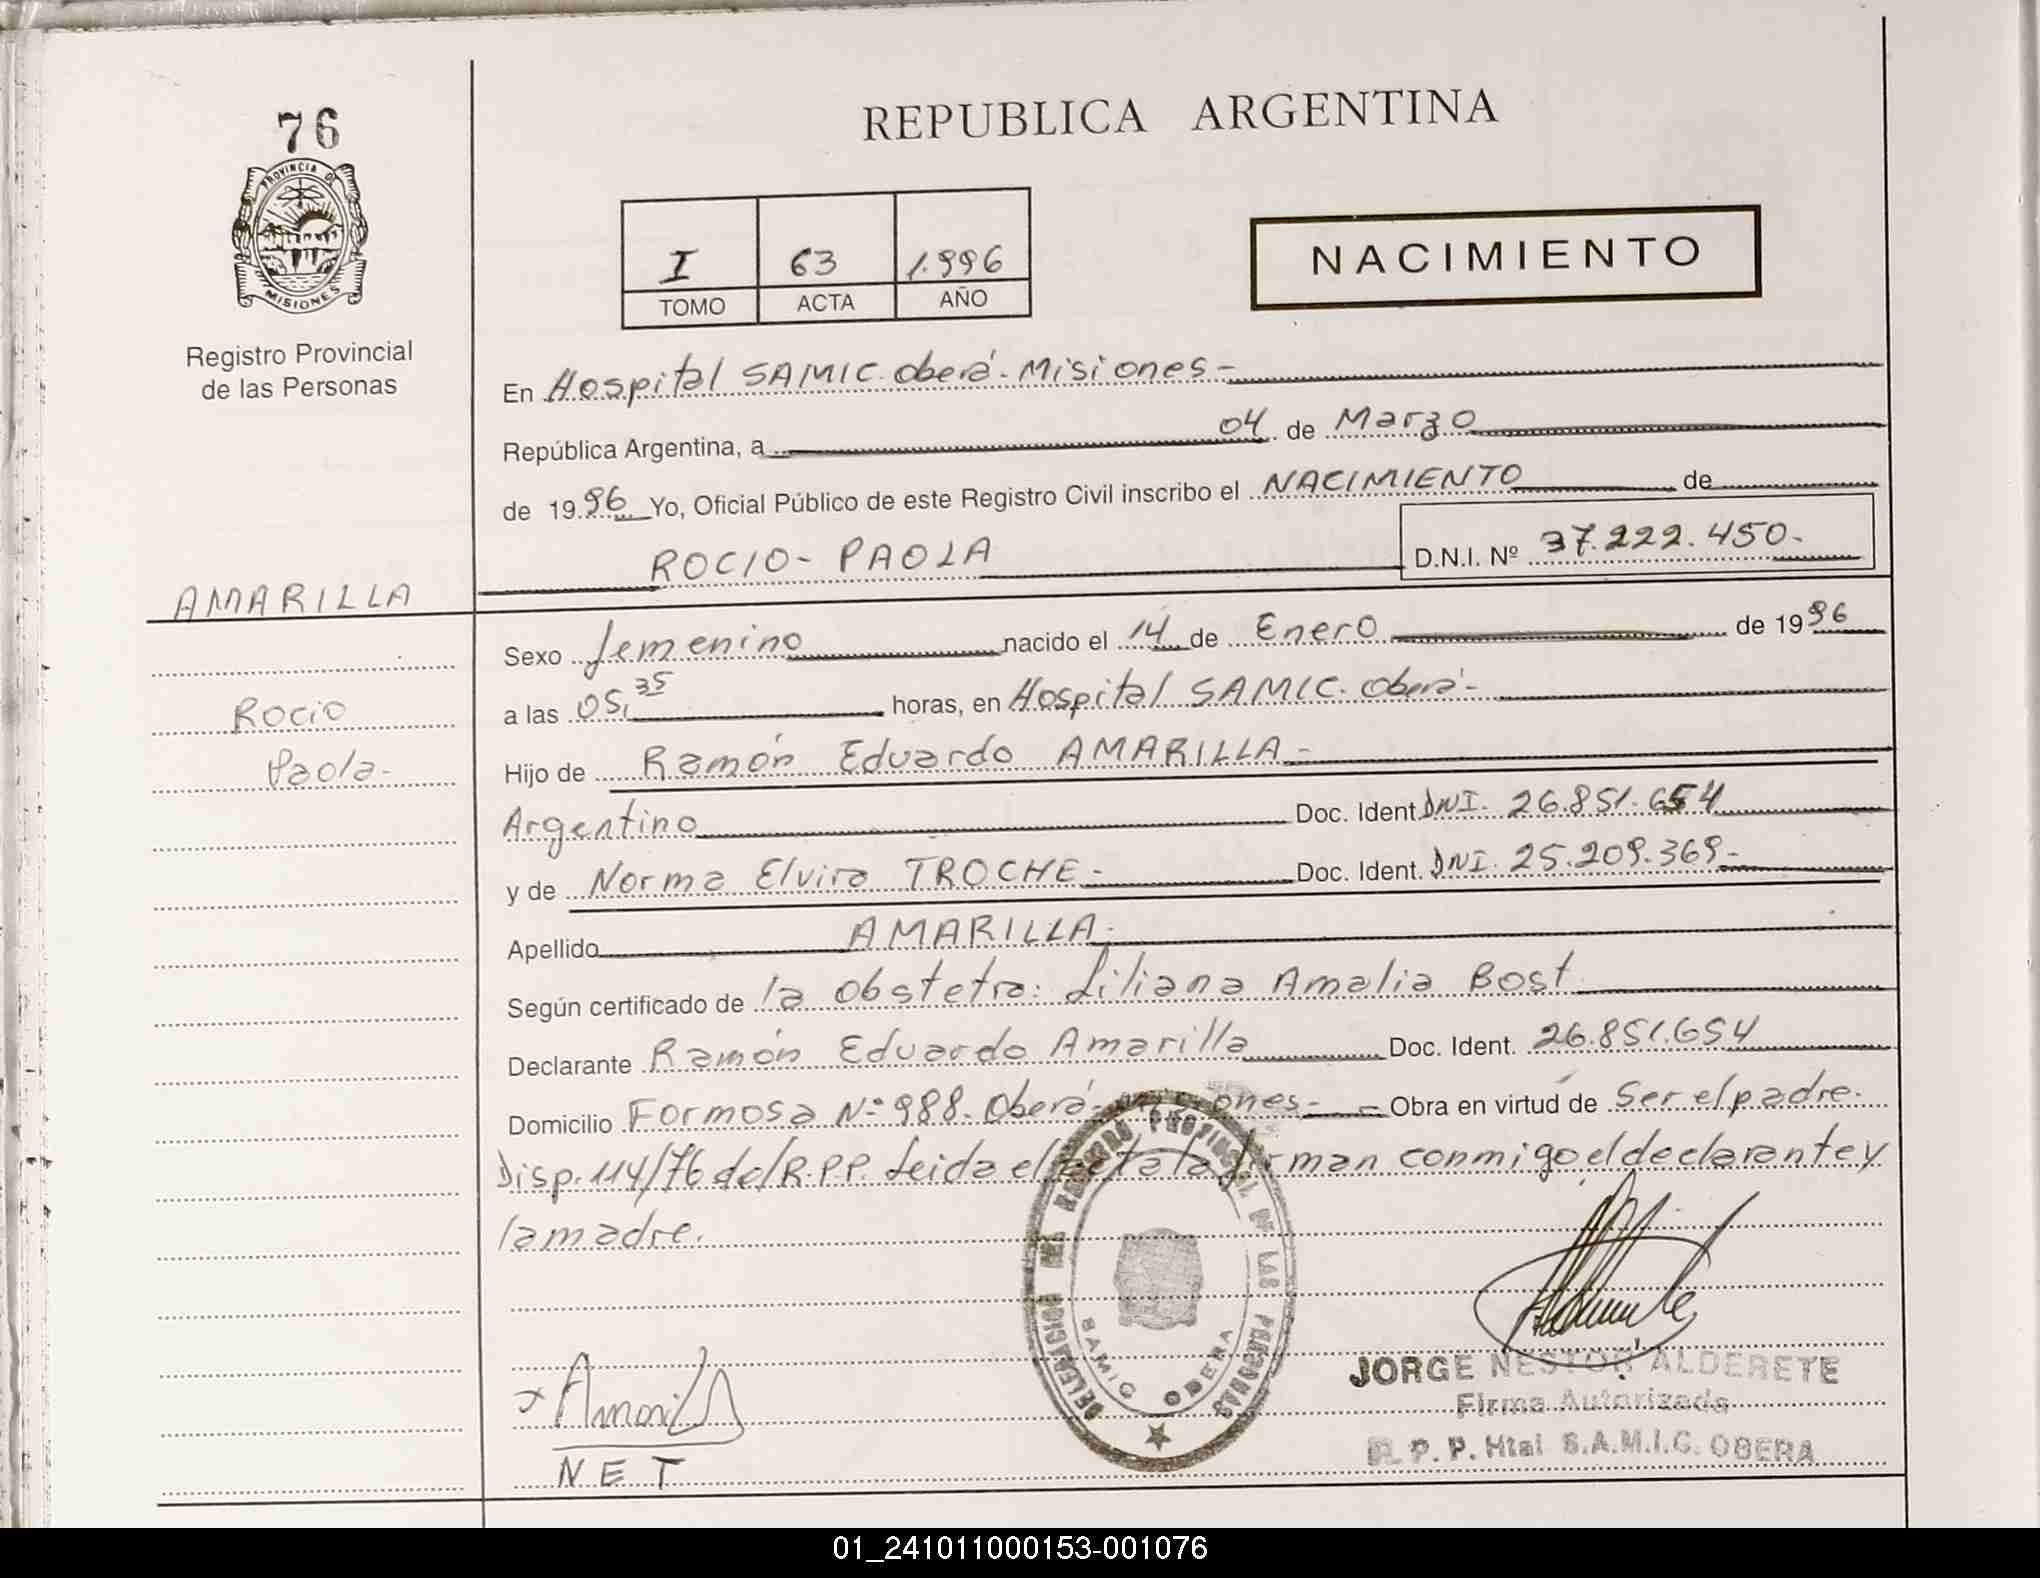 76
REPUBLICA ARGENTINA
PROVINCIA DE
MISIONES
Registro Provincial
de las Personas
I 63 1.996
TOMO ACTA AÑO
NACIMIENTO
En Hospital SAMIC. Oberá - Misiones -
República Argentina, a 04 de Marzo
de 1996 Yo, Oficial Público de este Registro Civil inscribo el NACIMIENTO de
ROCIO - PAOLA D.N.I. Nº 37.222.450.-
AMARILLA
Sexo femenino nacido el 14 de Enero de 1996
Rocio
a las 05,35 horas, en Hospital SAMIC. Oberá -
Paola -
Hijo de Ramón Eduardo AMARILLA -
Argentino Doc. Ident. DNI. 26.851.654
y de Norma Elvira TROCHE - Doc. Ident. DNI. 25.209.369 -
Apellido AMARILLA.
Según certificado de la Obstetra: Liliana Amalia Bost
Declarante Ramón Eduardo Amarilla Doc. Ident. 26.851.654
Domicilio Formosa Nº 988. Oberá - Misiones - Obra en virtud de Ser el padre.
Disp. 114/76 del R.P.P. Leida el acta la firman conmigo el declarante y
la madre.
DELEGACION DEL REGISTRO PROVINCIAL DE LAS PERSONAS
SAMIC OBERA
JORGE NESTOR ALDERETE
Firma Autorizada
R. P. P. Htal S.A.M.I.C. OBERA
x Amarilla
N E T
01_241011000153-001076